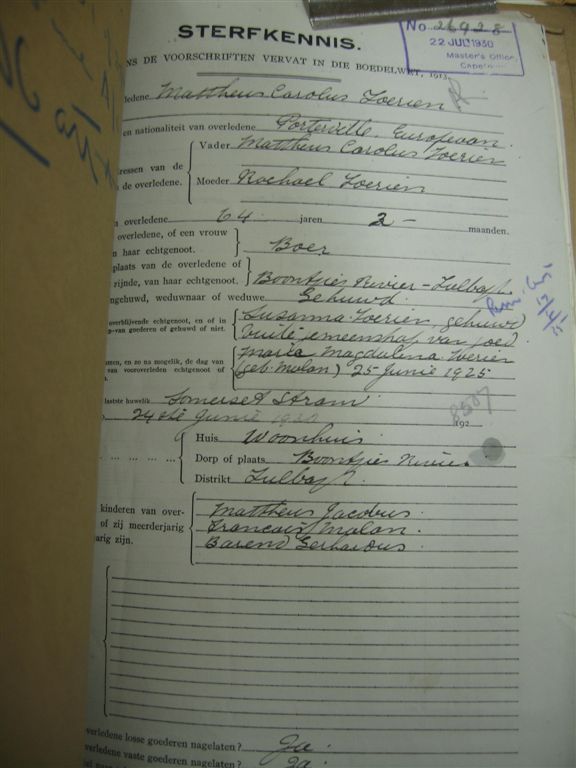 STERFKENNIS.
No 26925
22 JUL 1930
Master's Office
NS DE VOORSCHRIFTEN VERVAT IN DIE BOEDELWET, 1913
ledene Mattheus Carolus Loerien
en nationaliteit van overledene Porterville, Europeaan.
ressen van de
de overledene.
Vader Mattheus Carolus Loerien
Moeder Rachael Loerien
n overledene 64 jaren 2 - maanden.
overledene, of een vrouw
n haar echtgenoot.
Boer
plaats van de overledene of
rijnde, van haar echtgenoot.
Boontjies Rivier - Tulbagh.
ngehuwd, weduwnaar of weduwe. Gehuwd.
overblijvende echtgenoot, en of in
van goederen of gehuwd of niet.
Susanna Loerien, gehuwd
buite gemeenshap van goed.
omen, en zo na mogelijk, de dag van
van vooroverleden echtgenoot of
Maria Magdalina Loerien
(geb. Malan) 25 Junie 1925
laatste huwelik Somerset Strand
24ste Junie 1930 192
8507
Huis Woonhuis
Dorp of plaats Boontjies Rivier
Distrikt Tulbagh
kinderen van over-
of zij meerderjarig
arig zijn.
Mattheus Jacobus
Francois Malan.
Barend Gerhardus
verledene losse goederen nagelaten? Ja.
verledene vaste goederen nagelaten? Ja.